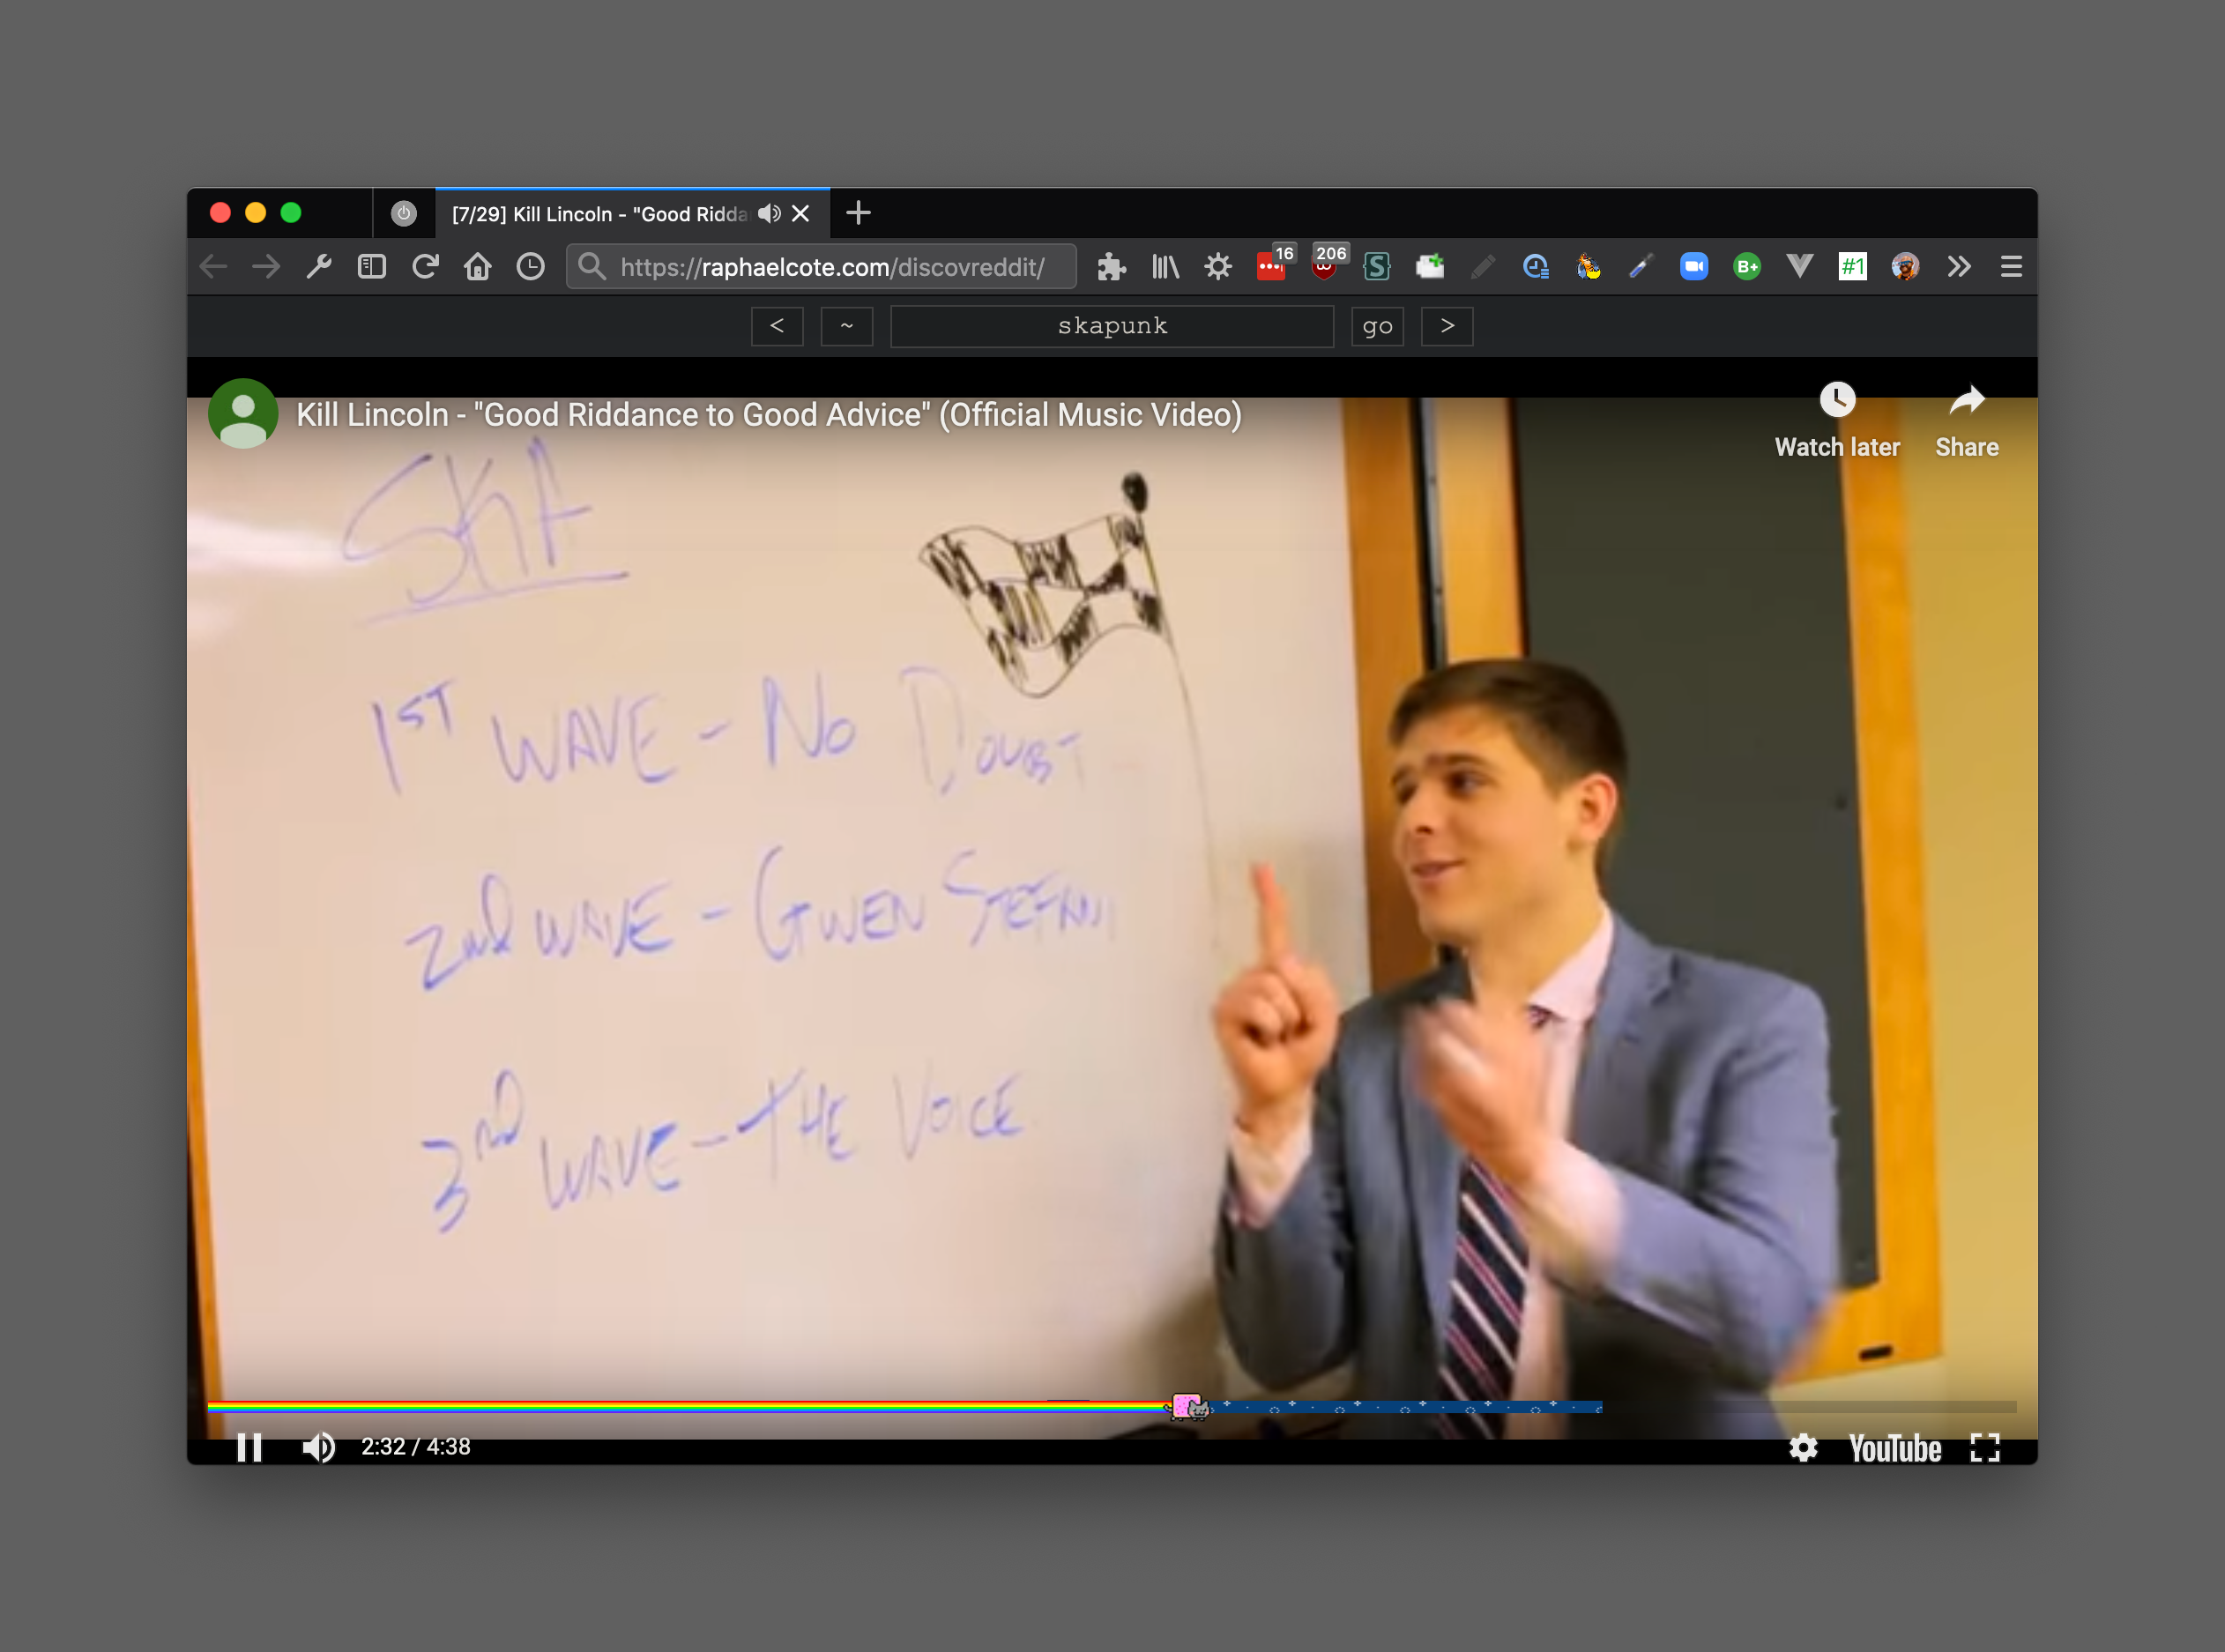 [7/29] Kill Lincoln - "Good Ridda
https://raphaelcote.com/discovreddit/
16
206
S
B+
#1
<
~
skapunk
go
>
Kill Lincoln - "Good Riddance to Good Advice" (Official Music Video)
Watch later
Share
SKA
1ST WAVE - No DOUBT
2nd WAVE - GWEN STEFANI
3nd WAVE - THE VOICE
2:32 / 4:38
YouTube